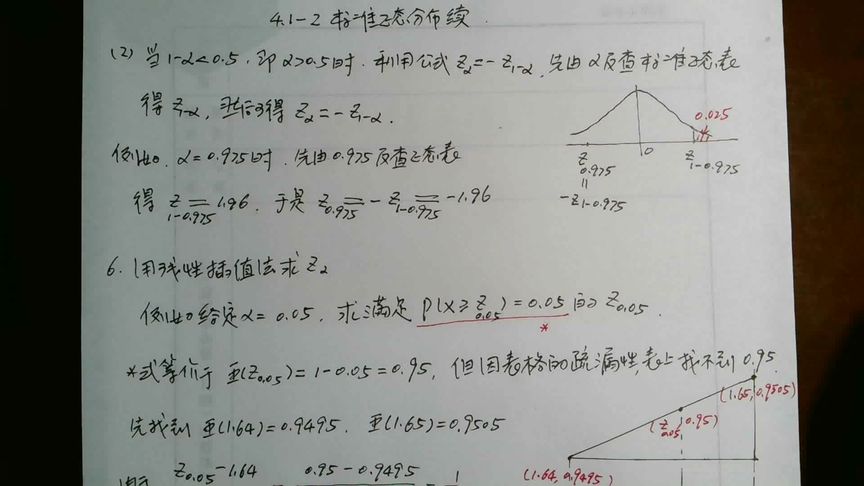 4.1-2 标准正态分布续.
(2) 当1-α<0.5, 即α>0.5时. 利用公式 Z_α = -Z_{1-α}. 先由α反查标准正态表
得 Z_{1-α}, 然后可得 Z_α = -Z_{1-α}.
例如. α=0.975时. 先由0.975反查正态表
得 Z_{1-0.975}=1.96. 于是 Z_{0.975}=-Z_{1-0.975}=-1.96
0.025
Z_{0.975}
0
Z_{1-0.975}
=
-Z_{1-0.975}
6. 用线性插值法求 Z_α
例如给定α=0.05, 求满足 P(X≥Z_{0.05})=0.05 的 Z_{0.05}.
*
*式等价于 Φ(Z_{0.05})=1-0.05=0.95, 但因表格的疏漏性, 表上找不到 0.95.
先找到 Φ(1.64)=0.9495. Φ(1.65)=0.9505
(1.65, 0.9505)
(Z_{0.05}, 0.95)
(1.64, 0.9495)
Z_{0.05}-1.64 0.95-0.9495 1